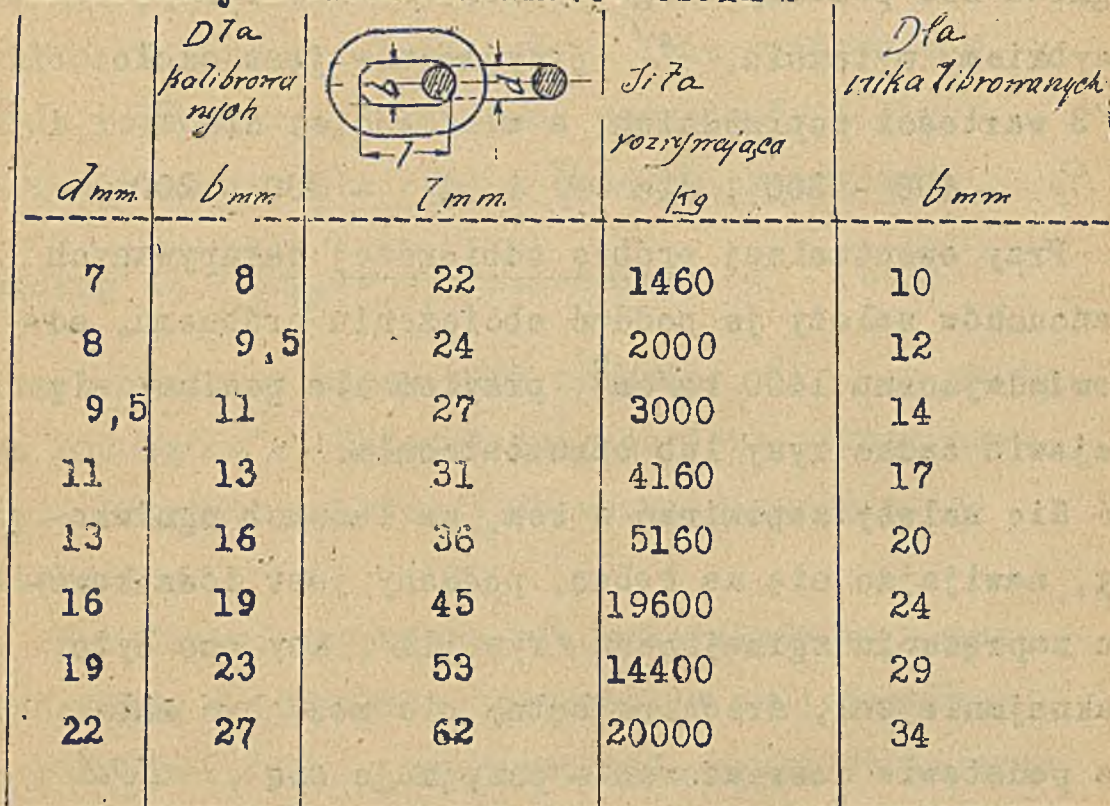 Dla kalibrowa nych Siła rozrywająca Dla nikalibrowanych
b d l
d mm. b mm. l mm. Kg b mm
7 8 22 1460 10
8 9,5 24 2000 12
9,5 11 27 3000 14
11 13 31 4160 17
13 16 36 5160 20
16 19 45 19600 24
19 23 53 14400 29
22 27 62 20000 34